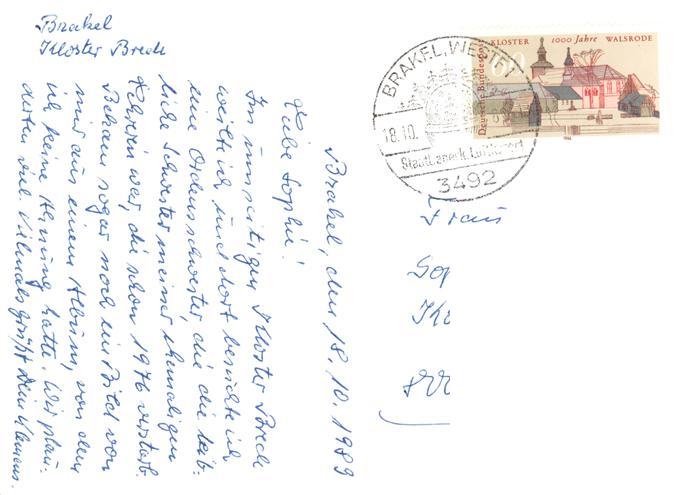 Brakel
Kloster Brede
Brakel, den 18. 10. 1989
Liebe Sophie!
Im umseitigen Kloster Brede
weilte ich und dort besuchte ich
eine Ordensschwester, die die leib-
liche Schwester meiner ehemaligen
Lehrerin war, die schon 1976 verstarb.
Bekam sogar noch ein Bild von
mir aus einem Album, von dem
ich keine Ahnung hatte. Wir plau-
derten viel. Vielmals grüßt Dein Klemens.
KLOSTER 1000 Jahre WALSRODE
Deutsche Bundespost
60
BRAKEL, WESTF 1
18.10.
Staatl. anerk. Luftkurort
3492
Frau